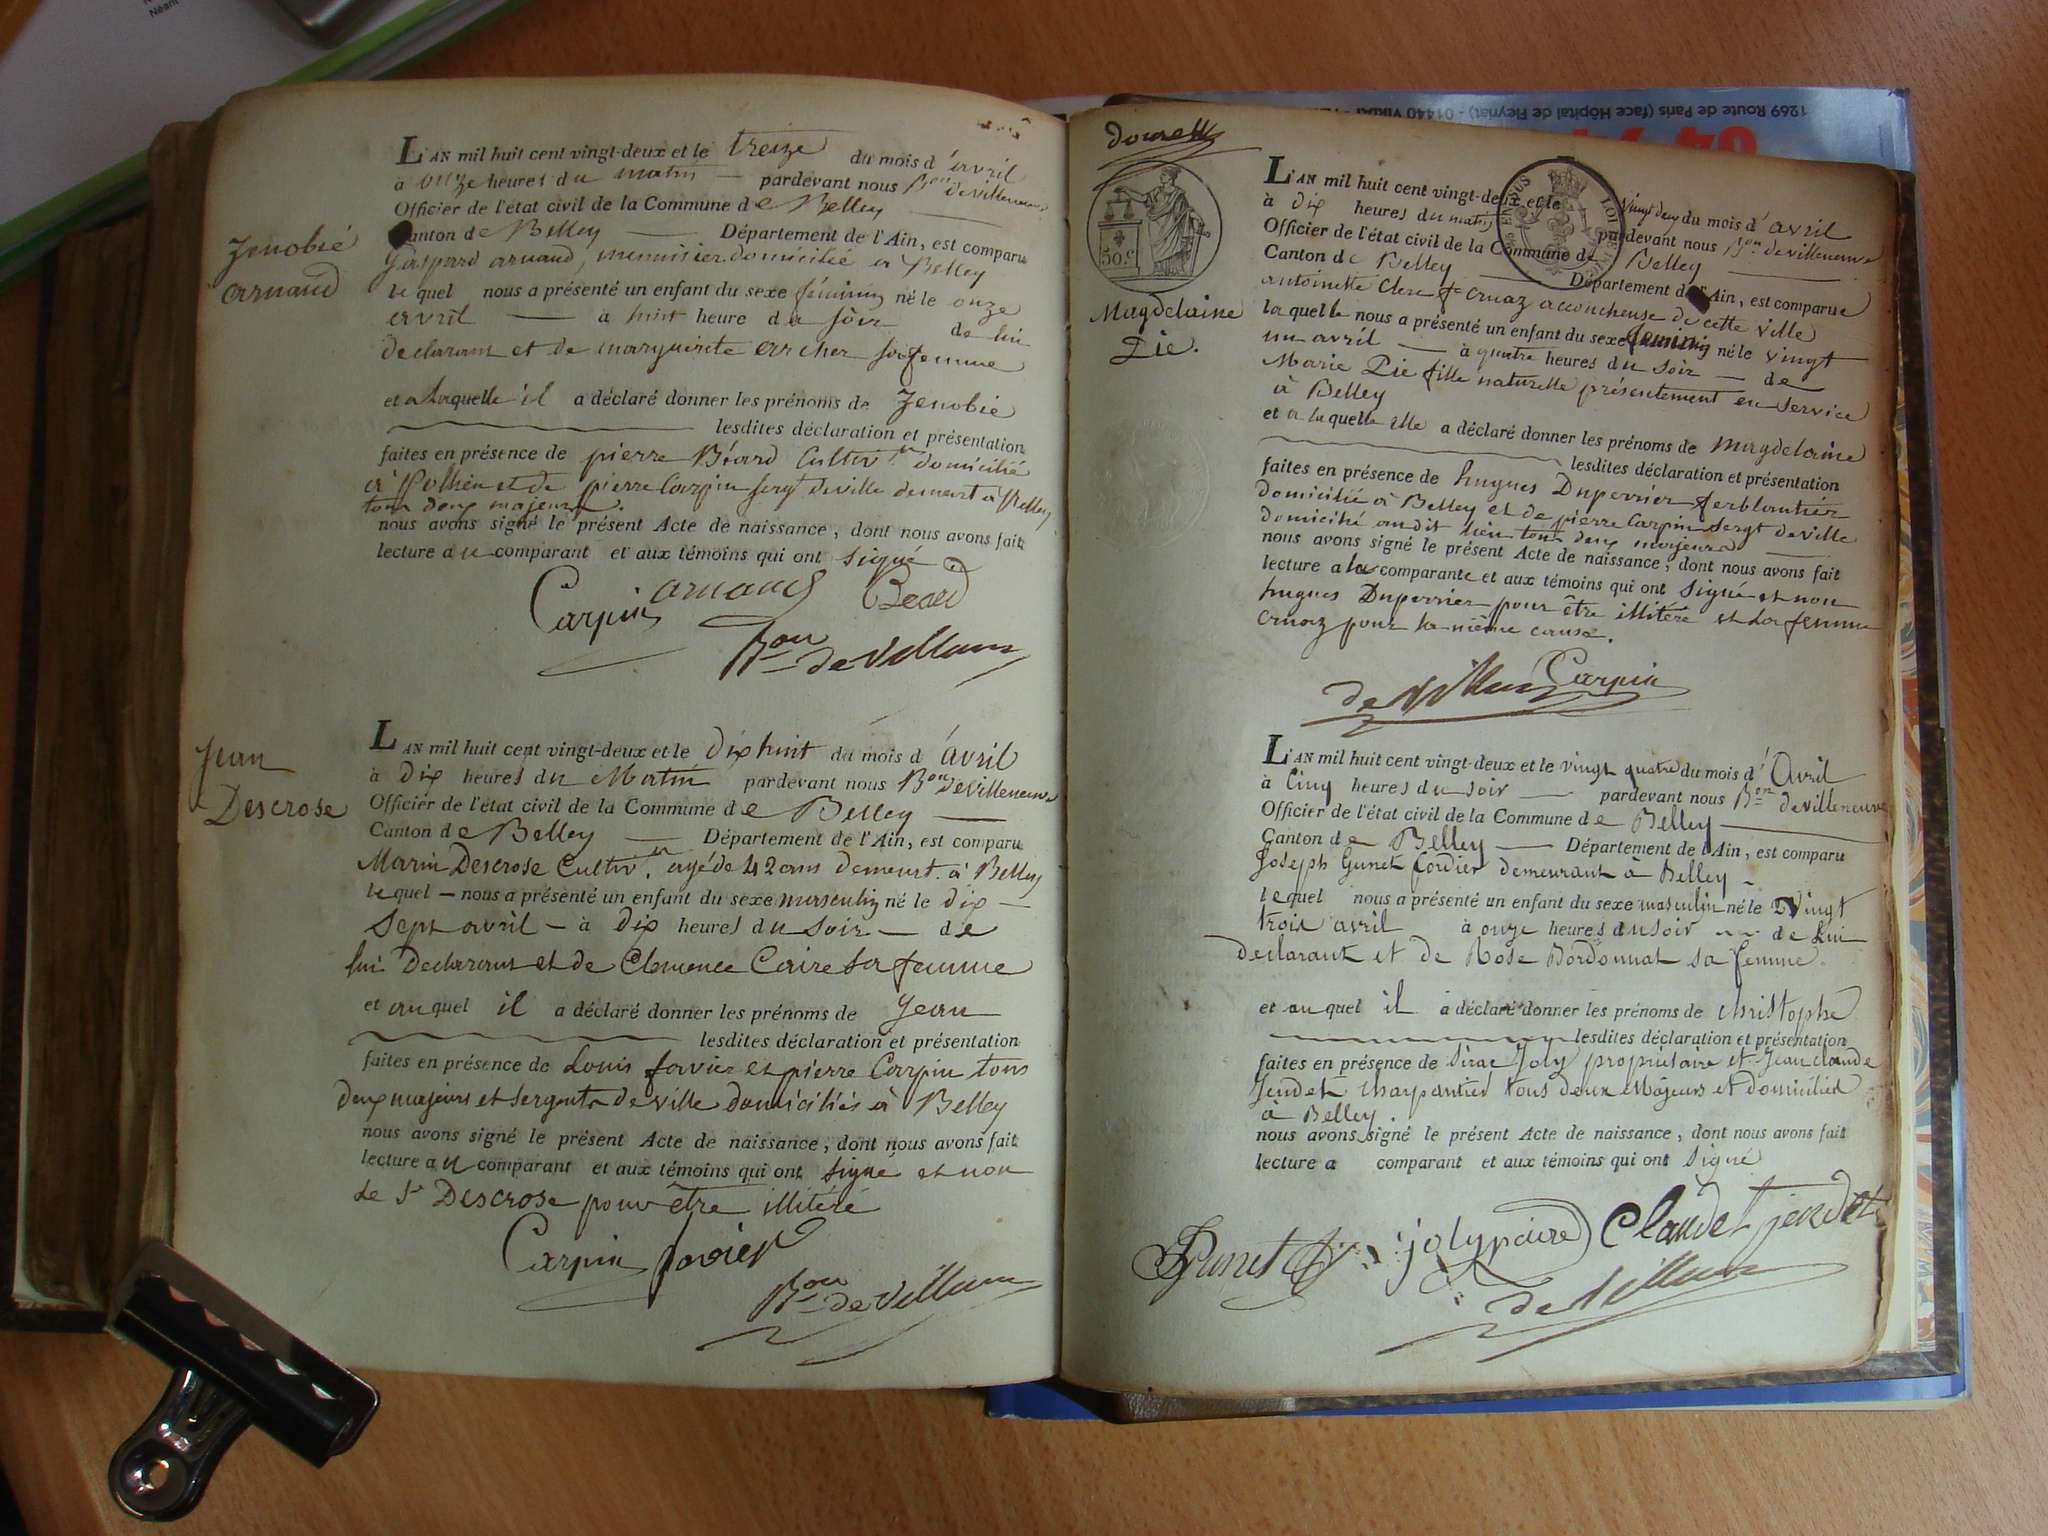 L'AN mil huit cent vingt-deux et le treize du mois d'avril
à onze heures du matin pardevant nous Bon de Villeneuve
Officier de l'état civil de la Commune de Belley
Canton de Belley Département de l'Ain, est comparu
Gaspard arnaud, menuisier domicilié à Belley
lequel nous a présenté un enfant du sexe féminin né le onze
avril à huit heure du soir de lui
declarant et de marguerite archer sa femme
et a laquelle il a déclaré donner les prénoms de Zenobie
lesdites déclaration et présentation
faites en présence de pierre Béard Cultivr domicilié
à et de pierre Carpin sergt de ville demeurt à Belley
tous deux majeurs.
nous avons signé le présent Acte de naissance, dont nous avons fait
lecture au comparant et aux témoins qui ont signé
Zenobie
arnaud
Carpin arnaud Beard
Bon de Villeneuve
L'AN mil huit cent vingt-deux et le dix huit du mois d'avril
à dix heures du Matin pardevant nous Bon de Villeneuve
Officier de l'état civil de la Commune de Belley
Canton de Belley Département de l'Ain, est comparu
Marin Descrose Cultivr. agé de 42 ans demeurt. à Belley
lequel nous a présenté un enfant du sexe masculin né le dix
sept avril à dix heures du soir de
lui Declarant et de Clemence Caire sa femme
et auquel il a déclaré donner les prénoms de Jean
lesdites déclaration et présentation
faites en présence de Louis favier et pierre Carpin tous
deux majeurs et sergents de ville domiciliés à Belley
nous avons signé le présent Acte de naissance, dont nous avons fait
lecture au comparant et aux témoins qui ont signé et non
le Sr Descrose pour être illitéré
Jean
Descrose
Carpin favier
Bon de Villeneuve
50.c
Magdelaine
Pie.
L'AN mil huit cent vingt-deux et le vingt deux du mois d'avril
à dix heures du matin pardevant nous Bon de Villeneuve
Officier de l'état civil de la Commune de Belley
Canton de Belley Département de l'Ain, est comparue
antoinette Clerc fe cruaz accoucheuse de cette ville
laquelle nous a présenté un enfant du sexe féminin né le vingt
un avril à quatre heures du soir de
Marie Pie fille naturelle présentement en service
à Belley
et a laquelle elle a déclaré donner les prénoms de magdelaine
lesdites déclaration et présentation
faites en présence de hugues Duperrier ferblantier
domicilié à Belley et de pierre Carpin sergt de ville
domicilié audit lieu tous deux majeurs
nous avons signé le présent Acte de naissance, dont nous avons fait
lecture a la comparante et aux témoins qui ont signé et non
hugues Duperrier pour être illitéré et la femme
cruaz pour la même cause.
de Villeneuve Carpin
L'AN mil huit cent vingt-deux et le vingt quatre du mois d'Avril
à Cinq heures du soir pardevant nous Bon de Villeneuve
Officier de l'état civil de la Commune de Belley
Canton de Belley Département de l'Ain, est comparu
Joseph Gunet Cordier demeurant à Belley
lequel nous a présenté un enfant du sexe masculin né le Vingt
trois avril à onze heures du soir de Lui
declarant et de Rose Bordonnat sa femme.
et auquel il a déclaré donner les prénoms de christophe
lesdites déclaration et présentation
faites en présence de Joly propriétaire et Jean claude
Jendet charpantier tous deux Majeurs et domiciliés
à Belley.
nous avons signé le présent Acte de naissance, dont nous avons fait
lecture a comparant et aux témoins qui ont signé
Gunet joly Claudet jendet
de Villeneuve
1269 Route de Paris (face Hôpital de Fleyriat) - 01440 VIRIAT